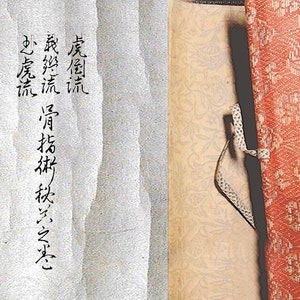 虎倒流
義鑑流
玉虎流
骨指術秘文之巻